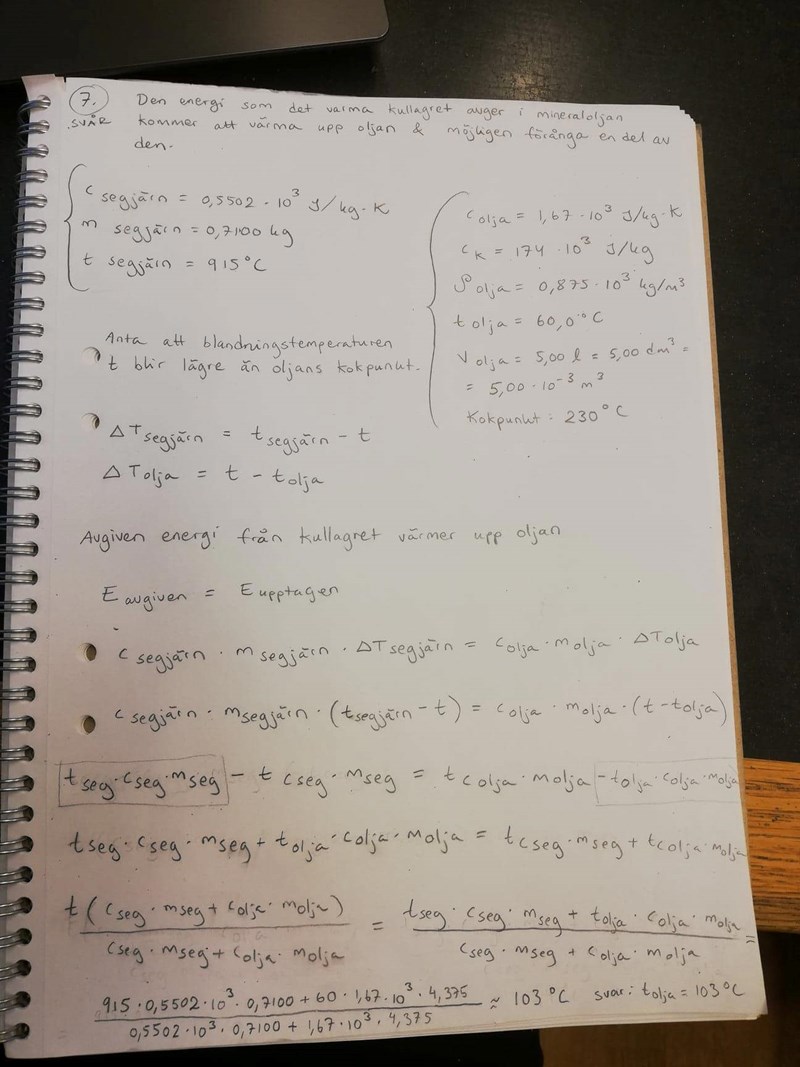 7. Den energi som det varma kullagret avger i mineraloljan
SVÅR kommer att värma upp oljan & möjligen förånga en del av
den.
c segjärn = 0,5502 · 10³ J/kg·K
m segjärn = 0,7100 kg
t segjärn = 915°C
c olja = 1,67 · 10³ J/kg·K
c K = 174 · 10³ J/kg
ρ olja = 0,875 · 10³ kg/m³
t olja = 60,0 °C
V olja = 5,00 l = 5,00 dm³ =
= 5,00 · 10⁻³ m³
Kokpunkt: 230°C
Anta att blandningstemperaturen
t blir lägre än oljans kokpunkt.
ΔT segjärn = t segjärn − t
ΔT olja = t − t olja
Avgiven energi från kullagret värmer upp oljan
E avgiven = E upptagen
c segjärn · m segjärn · ΔT segjärn = c olja · m olja · ΔT olja
c segjärn · m segjärn · (t segjärn − t) = c olja · m olja · (t − t olja)
t seg · c seg · m seg − t c seg · m seg = t c olja · m olja − t olja · c olja · m olja
t seg · c seg · m seg + t olja · c olja · m olja = t c seg · m seg + t c olja · m olja
t (c seg · m seg + c olja · m olja) = t seg · c seg · m seg + t olja · c olja · m olja =
c seg · m seg + c olja · m olja c seg · m seg + c olja · m olja
915 · 0,5502 · 10³ · 0,7100 + 60 · 1,67 · 10³ · 4,375 ≈ 103 °C svar: t olja = 103 °C
0,5502 · 10³ · 0,7100 + 1,67 · 10³ · 4,375